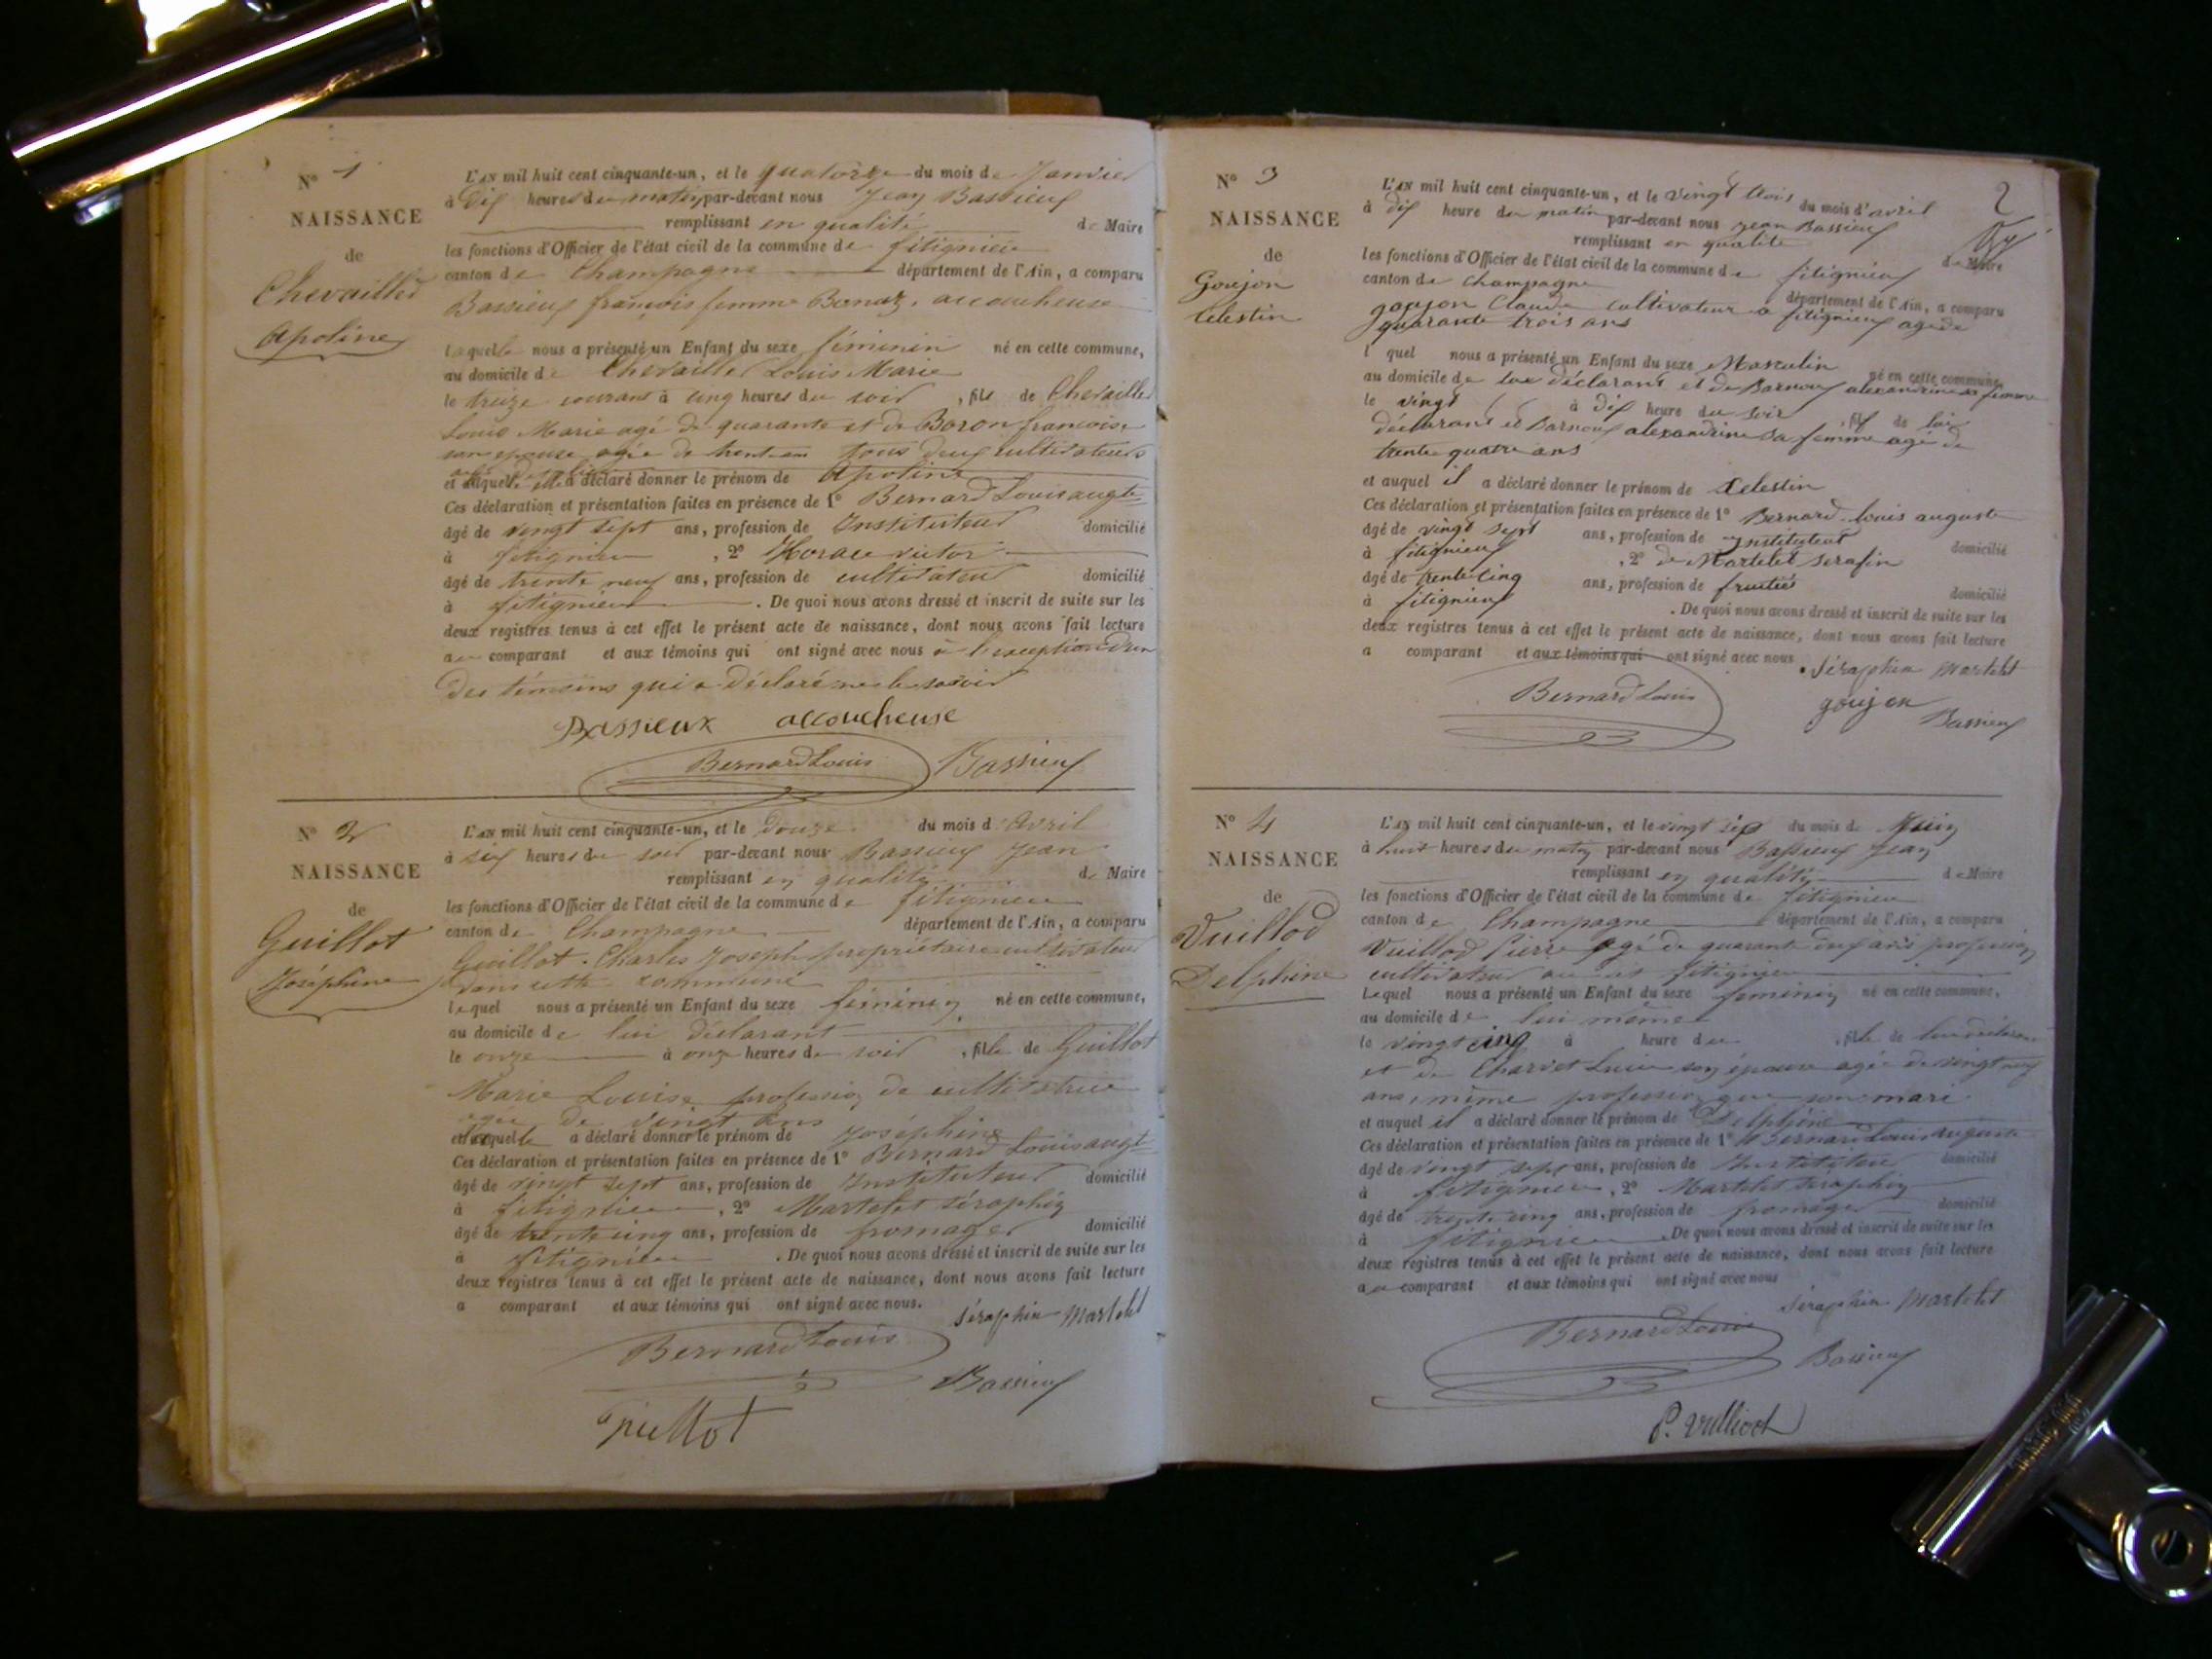 N° 1
NAISSANCE
de
Chevailler
Apoline
L'AN mil huit cent cinquante-un, et le quatorze du mois de Janvier
à Dix heures du matin par-devant nous Jean Bassieux
remplissant en qualité de Maire
les fonctions d'Officier de l'état civil de la commune de fitignieu
canton de Champagne département de l'Ain, a comparu
Bassieux françois femme Bonaz, accoucheuse
laquelle nous a présenté un Enfant du sexe féminin né en cette commune,
au domicile de Chevailler Louis Marie
le treize courant à cinq heures du soir, fils de Chevailler
Louis Marie agé de quarante et de Boron francoise
son epouse agée de trent un tous deux cultivateurs
et auquel elle a déclaré donner le prénom de Apoline
Ces déclaration et présentation faites en présence de 1° Bernard Louis augte
âgé de vingt sept ans, profession de Instituteur domicilié
à fitignieu, 2° Horace victor
âgé de trente neuf ans, profession de cultivateur domicilié
à fitignieu. De quoi nous avons dressé et inscrit de suite sur les
deux registres tenus à cet effet le présent acte de naissance, dont nous avons fait lecture
au comparant et aux témoins qui ont signé avec nous à l'exception d'un
Des témoins qui a Déclaré ne le savoir
Bassieux accoucheuse
Bernard Louis Bassieux
N° 2
NAISSANCE
de
Guillot
Joséphine
L'AN mil huit cent cinquante-un, et le Douze du mois d'Avril
à six heures du soir par-devant nous Bassieux Jean
remplissant en qualité de Maire
les fonctions d'Officier de l'état civil de la commune de fitignieu
canton de Champagne département de l'Ain, a comparu
Guillot Charles Joseph propriétaire cultivateur
dans cette commune
lequel nous a présenté un Enfant du sexe féminin né en cette commune,
au domicile de lui déclarant
le onze à onze heures du soir, fille de Guillot
Marie Louise profession de cultivatrice
agée de vingt ans
et auquel le a déclaré donner le prénom de Joséphine
Ces déclaration et présentation faites en présence de 1° Bernard Louis augt
âgé de vingt sept ans, profession de Instituteur domicilié
à fitignieu, 2° Martelet séraphin
âgé de trente cinq ans, profession de fromager domicilié
à fitignieu. De quoi nous avons dressé et inscrit de suite sur les
deux registres tenus à cet effet le présent acte de naissance, dont nous avons fait lecture
a comparant et aux témoins qui ont signé avec nous.
Séraphin Martelet
Bernard Louis
Bassieux
Guillot
2
N° 3
NAISSANCE
de
Goujon
Celestin
L'AN mil huit cent cinquante-un, et le vingt trois du mois d'avril
à dix heure du matin par-devant nous jean Bassieux
remplissant en qualité de Maire
les fonctions d'Officier de l'état civil de la commune de fitignieux
canton de champagne département de l'Ain, a comparu
goujon Claude cultivateur a fitignieux agé de
quarante trois ans
l quel nous a présenté un Enfant du sexe Masculin né en cette commune,
au domicile de lui déclarant et de Barnoux alexandrine sa femme
le vingt à dix heure du soir, fils de lui
déclarant et Barnoux alexandrine sa femme agé de
trente quatre ans
et auquel il a déclaré donner le prénom de Celestin
Ces déclaration et présentation faites en présence de 1° Bernard louis auguste
âgé de vingt sept ans, profession de Instituteur domicilié
à fitignieux, 2° de Martelet serafin
âgé de trente cinq ans, profession de fruitier domicilié
à fitignieux. De quoi nous avons dressé et inscrit de suite sur les
deux registres tenus à cet effet le présent acte de naissance, dont nous avons fait lecture
a comparant et aux témoins qui ont signé avec nous.
Séraphin Martelet
Bernard Louis
goujon
Bassieux
N° 4
NAISSANCE
de
Vuillod
Delphine
L'AN mil huit cent cinquante-un, et le vingt sept du mois de
à huit heures du matin par-devant nous Bassieux Jean
remplissant en qualité de Maire
les fonctions d'Officier de l'état civil de la commune de fitignieu
canton de Champagne département de l'Ain, a comparu
Vuillod Pierre agé de quarante deux ans profession
cultivateur fitignieu
Lequel nous a présenté un Enfant du sexe feminin né en cette commune,
au domicile de lui même
le vingt cinq à heure du, fille de lui déclarant
et de Charvet Lucie son épouse agée de vingt neuf
ans, même profession que son mari
et auquel il a déclaré donner le prénom de Delphine
Ces déclaration et présentation faites en présence de 1° Bernard Louis auguste
âgé de vingt sept ans, profession de Instituteur domicilié
à fitignieu, 2° Martelet séraphin
âgé de trente cinq ans, profession de fromager domicilié
à fitignieu. De quoi nous avons dressé et inscrit de suite sur les
deux registres tenus à cet effet le présent acte de naissance, dont nous avons fait lecture
au comparant et aux témoins qui ont signé avec nous
Séraphin Martelet
Bernard Louis
Bassieux
P. Vulliod